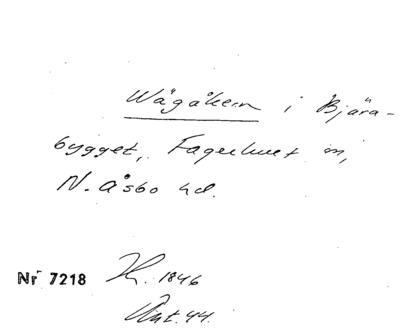 Wågåkern i Bjära-
bygget, Fagerhult sn,
N. Åsbo hd.
Nr 7218 Kr. 1846
Ant. 44.